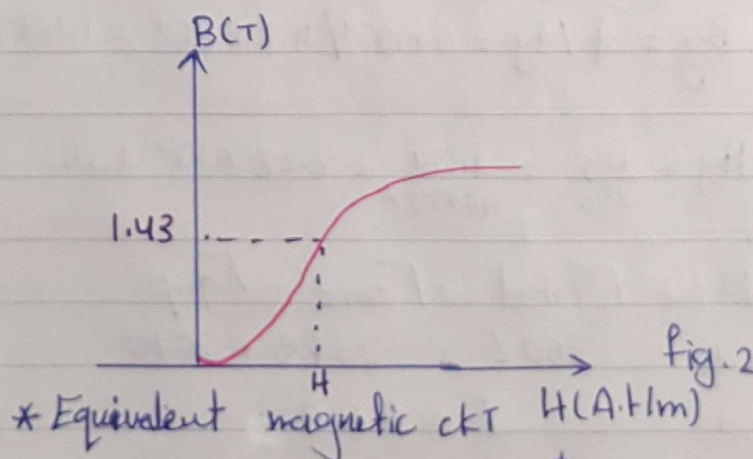 B(T)
1.43
H
fig.2
* Equivalent magnetic ckT H(A.t/m)